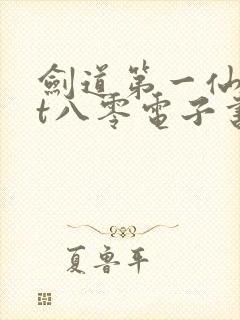 劍道第一仙
t八零電子書
夏魯平